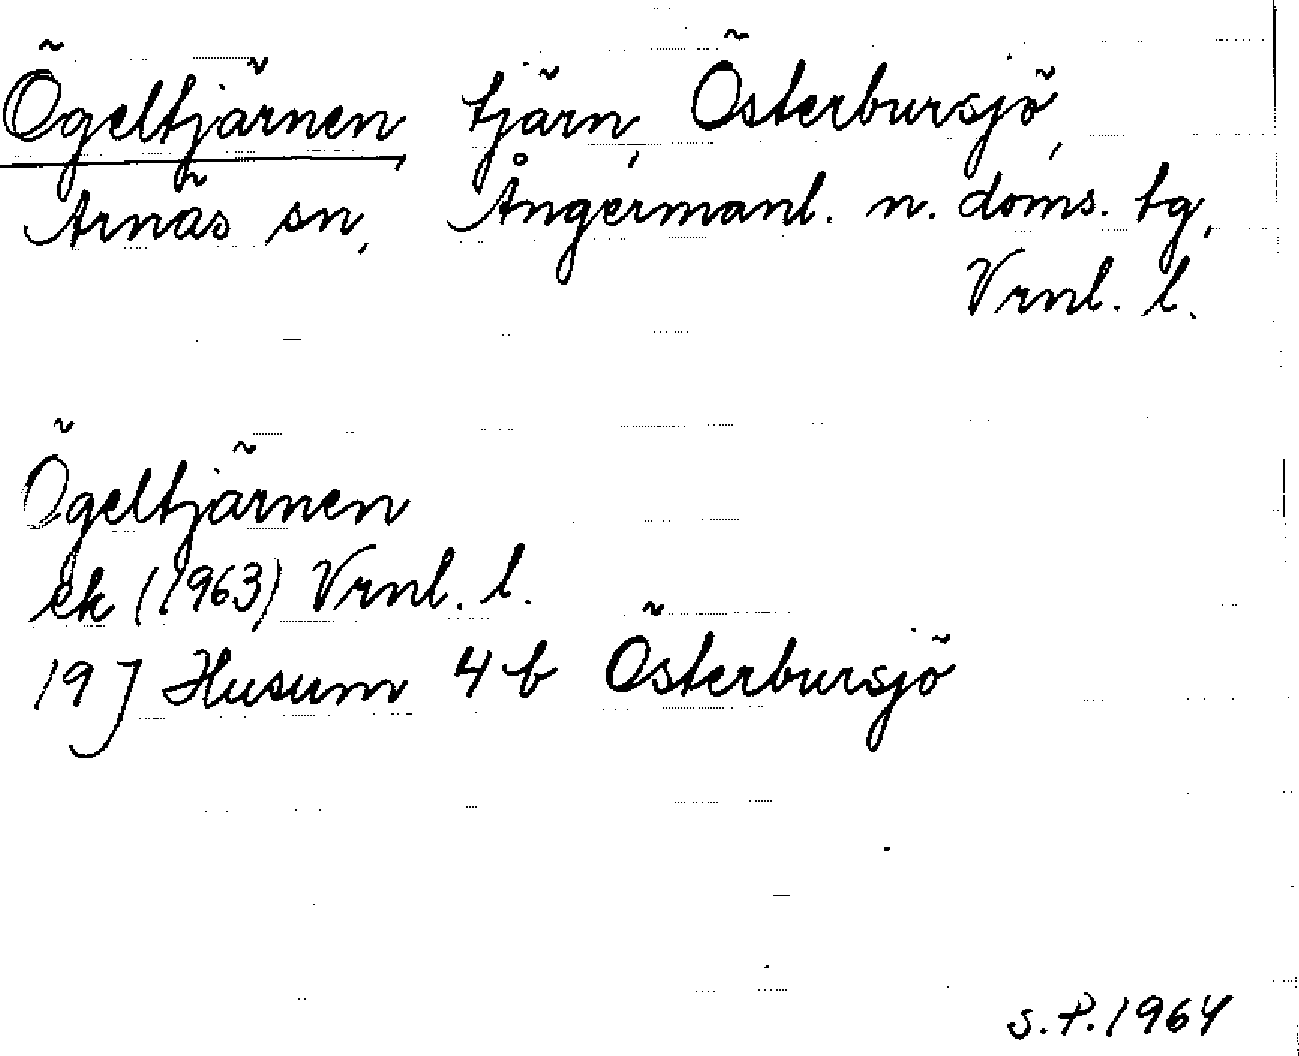 Ögeltjärnen, tjärn, Österbursjö,
Arnäs sn, Ångermanl. n. doms. tg,
Vrnl. l.
Ögeltjärnen
ek (1963) Vrnl. l.
19 J Husum 4 b Österbursjö
S.P. 1964